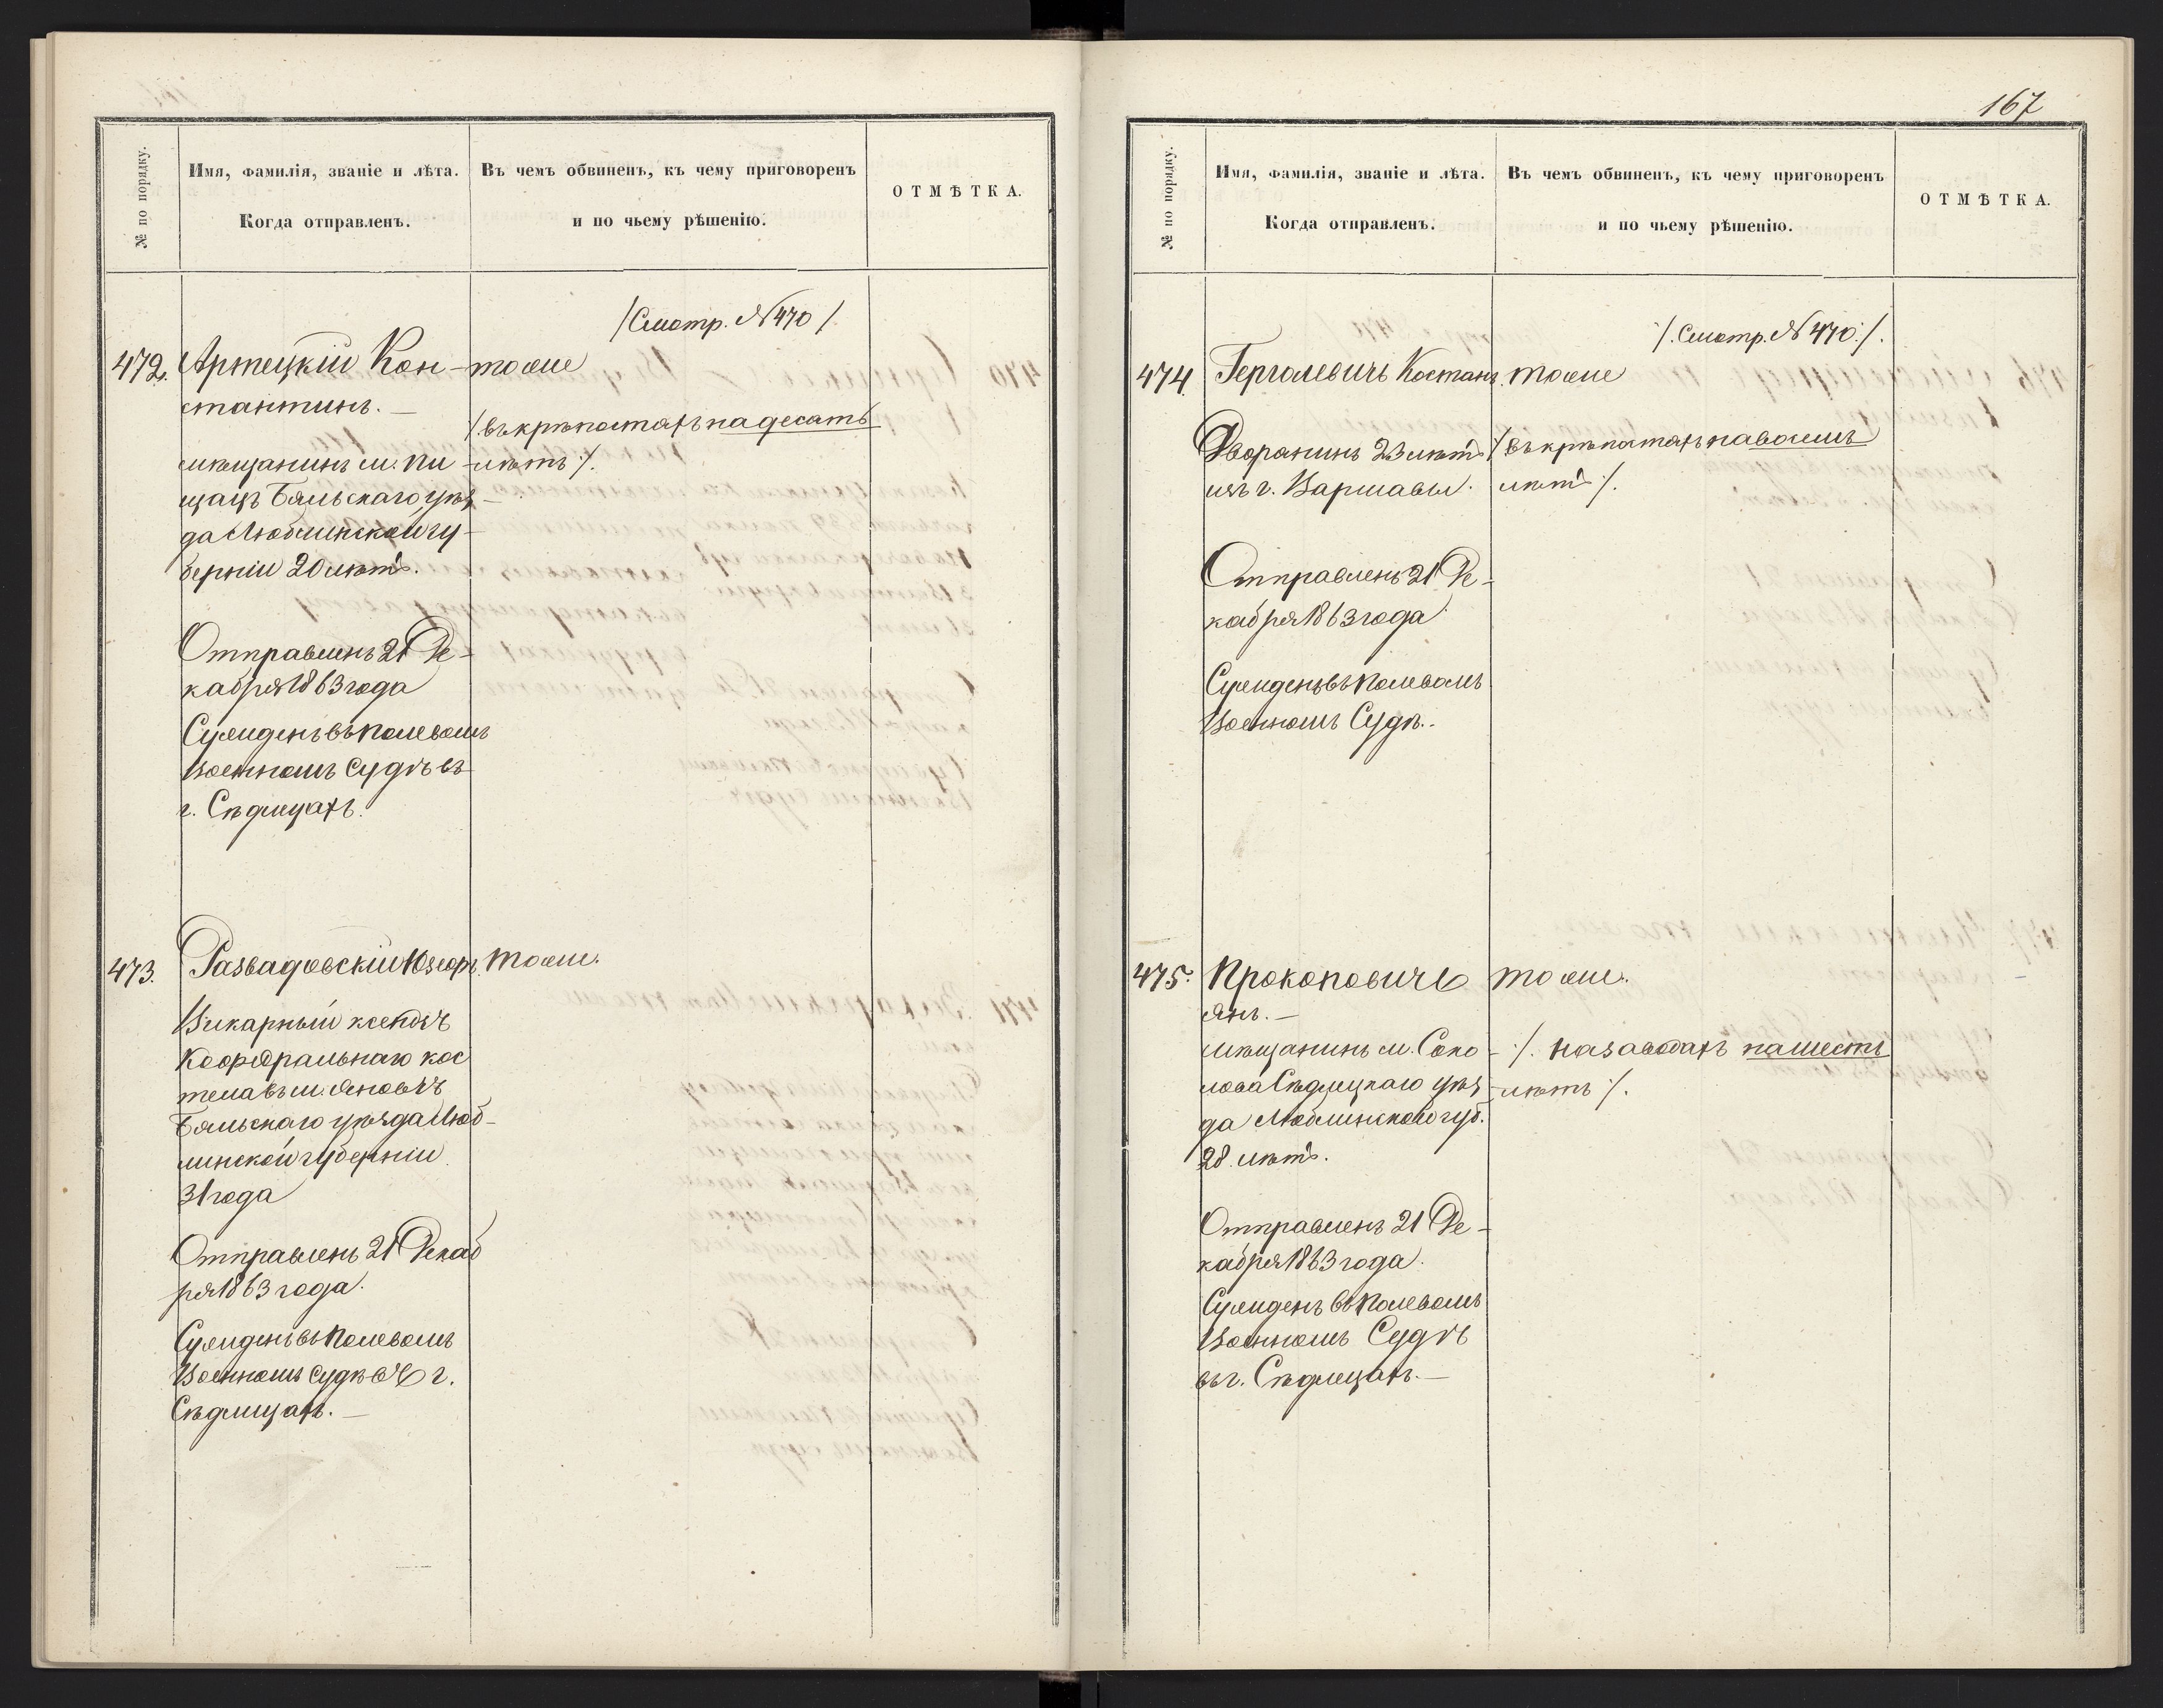 № по порядку.
Имя, фамилія, званіе и лѣта.
Когда отправленъ.
Въ чемъ обвиненъ, къ чему приговоренъ
и по чьему рѣшенію.
ОТМѢТКА.
/Смотр. N 470/
472. Артецкій Кон-
стантинъ. —
мѣщанинъ м. Пи-
щацъ Бяльскаго уѣз-
да Люблинской гу-
берніи 20 лѣтъ.
Отправленъ 21 Де-
кабря 1863 года
Сужденъ въ Полевомъ
Военномъ Судѣ въ
г. Сѣдлицахъ.
тоже
/. въ крѣпостяхъ на десять
лѣтъ /.
473. Развадовскій Юзефъ.
Викарный ксендзъ
Коофедральнаго кос
тела въ м. Яновѣ
Бяльскаго уѣзда Люб-
линской губерніи
31 года
Отправленъ 21 Декаб
ря 1863 года.
Сужденъ въ Полевомъ
Военномъ Судѣ въ г.
Сѣдлицахъ. —
тоже.
167
№ по порядку.
Имя, фамилія, званіе и лѣта.
Когда отправленъ.
Въ чемъ обвиненъ, къ чему приговоренъ
и по чьему рѣшенію.
ОТМѢТКА.
/. Смотр. N 470 /.
474. Герголевичъ Костант.
Дворянинъ 23 лѣтъ
изъ г. Варшавы.
Отправленъ 21 Де-
кабря 1863 года
Сужденъ въ Полевомъ
Военномъ Судѣ.
тоже
/. въ крѣпостяхъ на восемь
лѣтъ /.
475. Прокоповичъ
Янъ. —
мѣщанинъ м. Соко-
лова Сѣдлецкаго уѣз-
да Люблинской губ.
28 лѣтъ.
Отправленъ 21 Де-
кабря 1863 года.
Сужденъ въ Полевомъ
Военномъ Судѣ
въ г. Сѣдлецахъ. —
тоже.
/. на заводахъ на шесть
лѣтъ /.